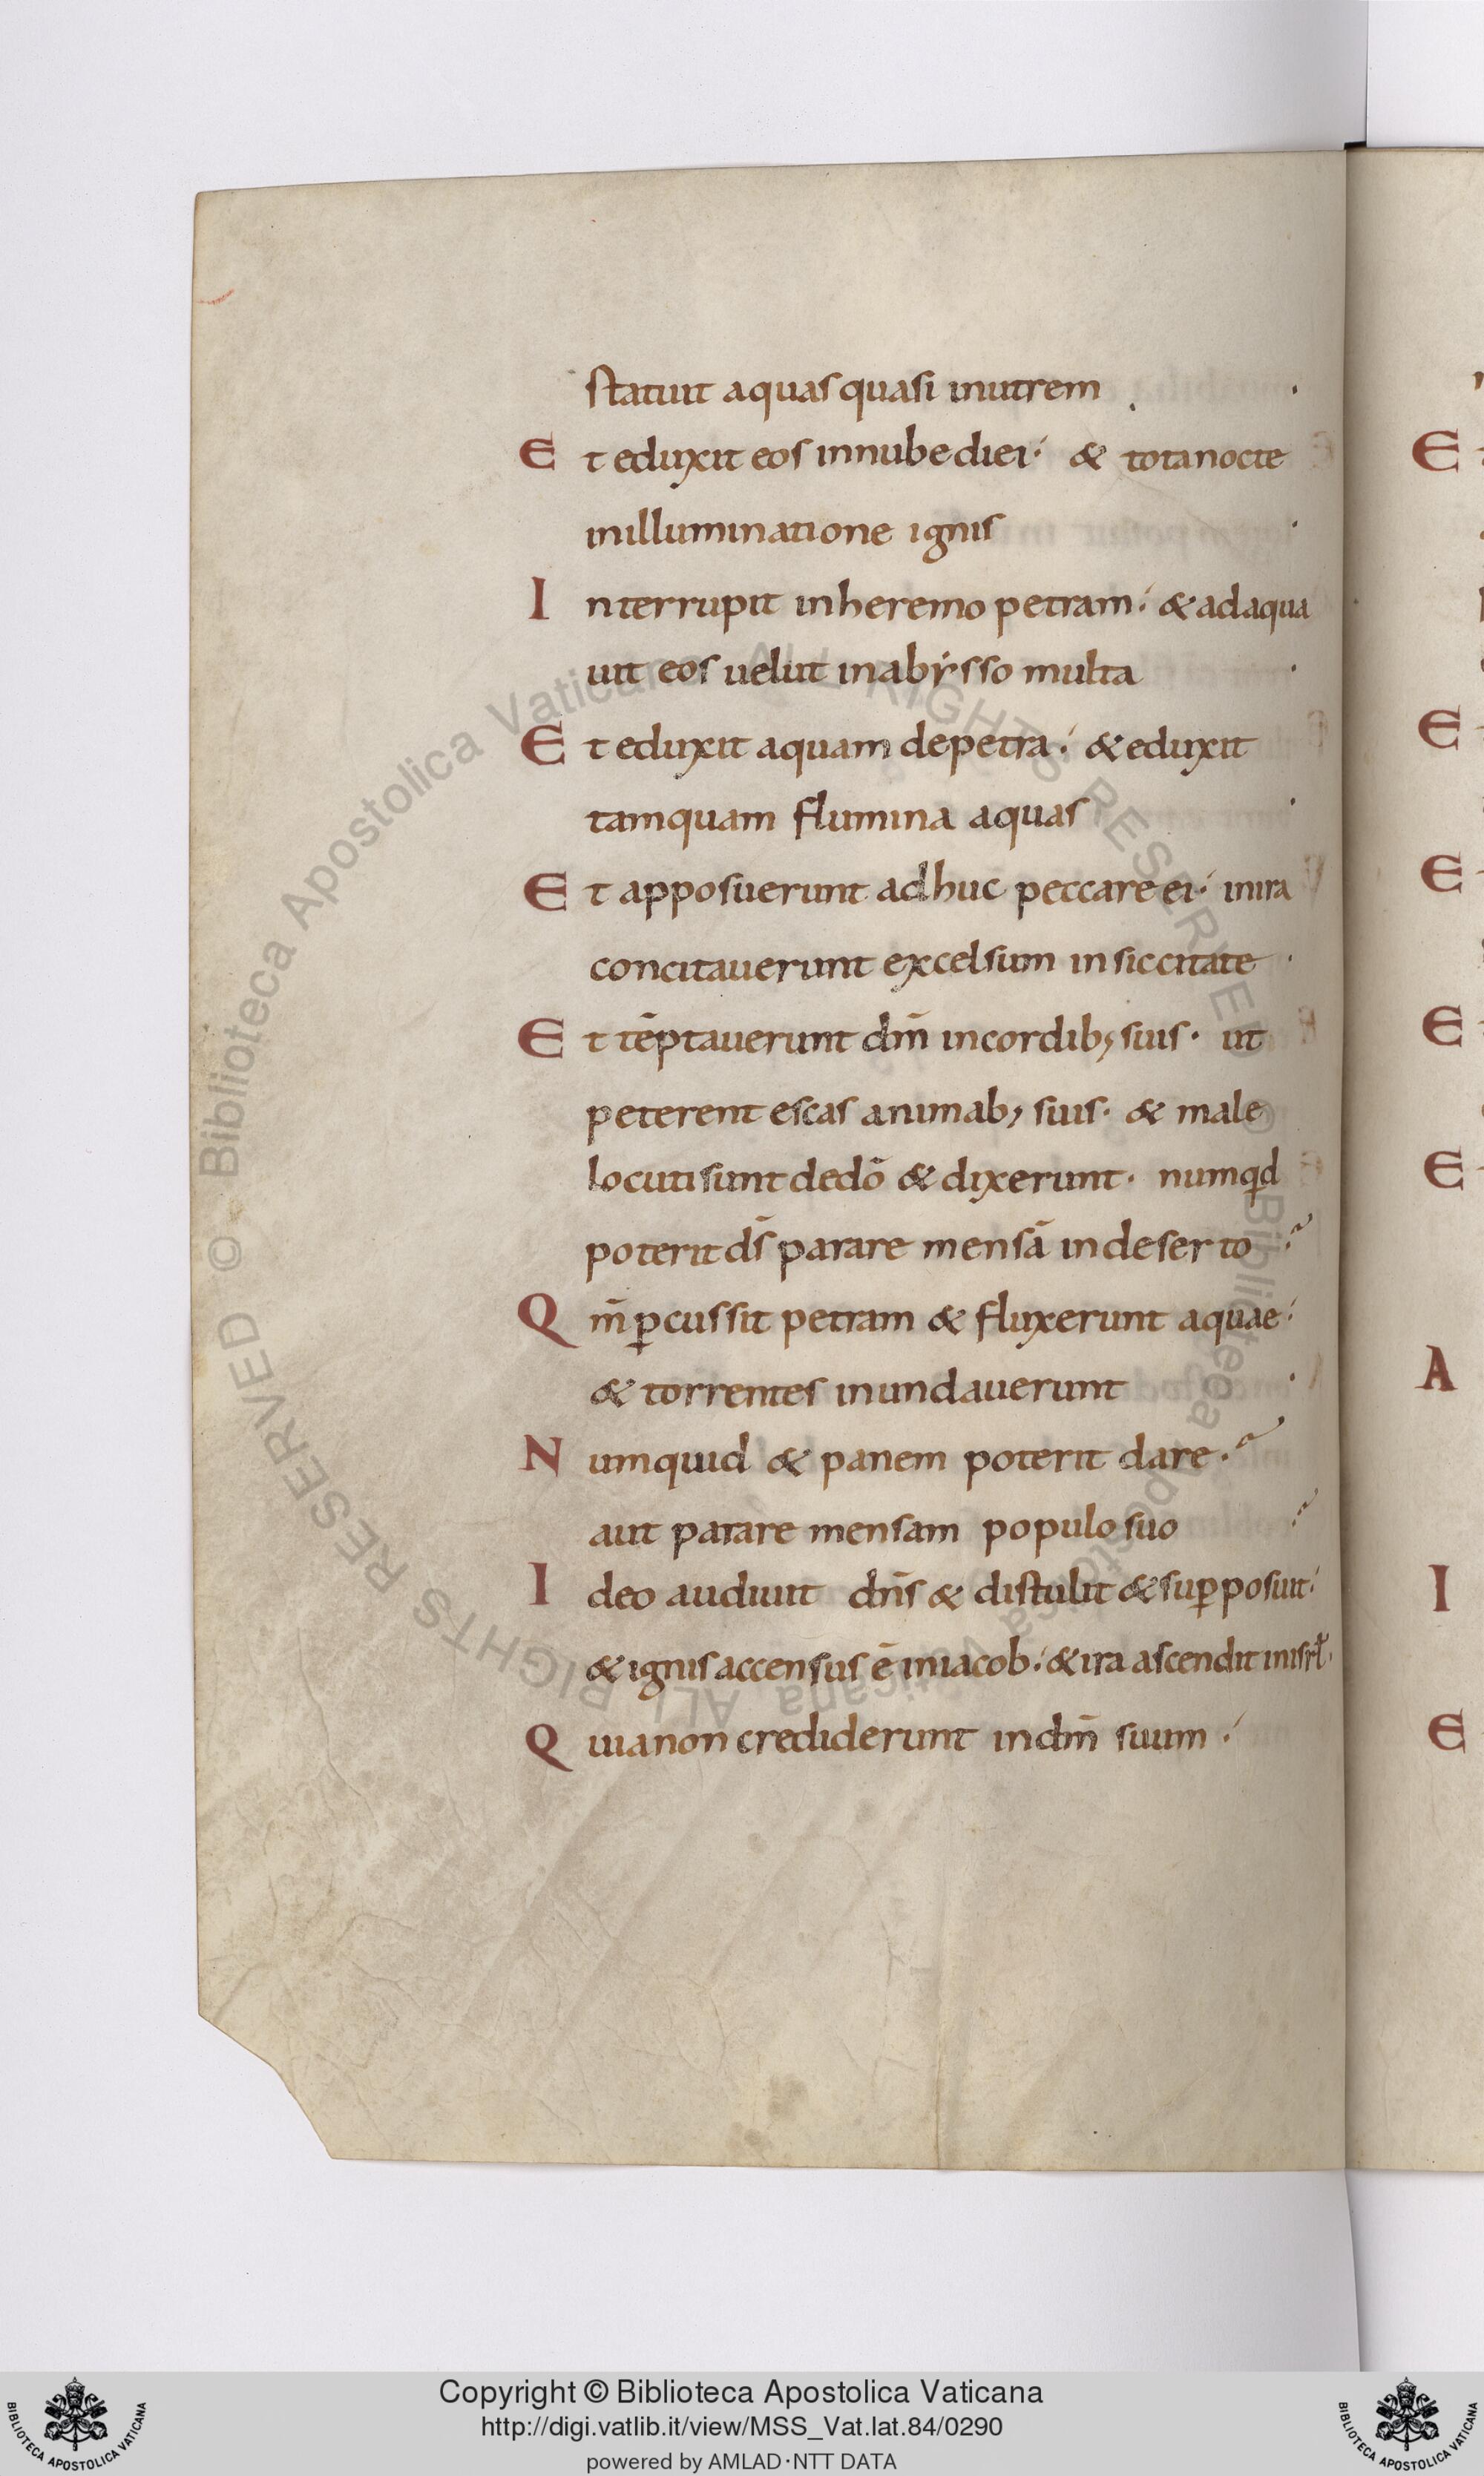 statuit aquas quasi inutrem .
Et eduxit eos innubediei· & totanocte
inilluminatione ignis .
Interrupit inheremo petram· & adaqua
uit eos uelut inabẏsso multa .
Et eduxit aquam depetra· & eduxit
tamquam flumina aquas .
Et apposuerunt adhuc peccare ei· inira
concitauerunt excelsum insiccitate .
Et tēptauerunt dm̄ incordib; suis· ut
peterent escas animab; suis· & male
locuti sunt dedō & dixerunt· numqd
poterit ds̄ parare mensā indeserto
Qm̄ ꝑcussit petram & fluxerunt aquae·
& torrentes inundauerunt .
Numquid & panem poterit dare·
aut parare mensam populo suo
Ideo audiuit dn̄s & distulit & suꝑposuit·
& ignis accensus ē iniacob· & ira ascendit inisrł·
Quia non crediderunt indm̄ suum·
E
E
E
E
E
A
I
E
© Biblioteca Apostolica Vaticana ALL RIGHTS RESERVED
© Biblioteca Apostolica Vaticana ALL RIGHTS RESERVED
BIBLIOTECA APOSTOLICA VATICANA
Copyright © Biblioteca Apostolica Vaticana
http://digi.vatlib.it/view/MSS_Vat.lat.84/0290
powered by AMLAD·NTT DATA
BIBLIOTECA APOSTOLICA VATICANA